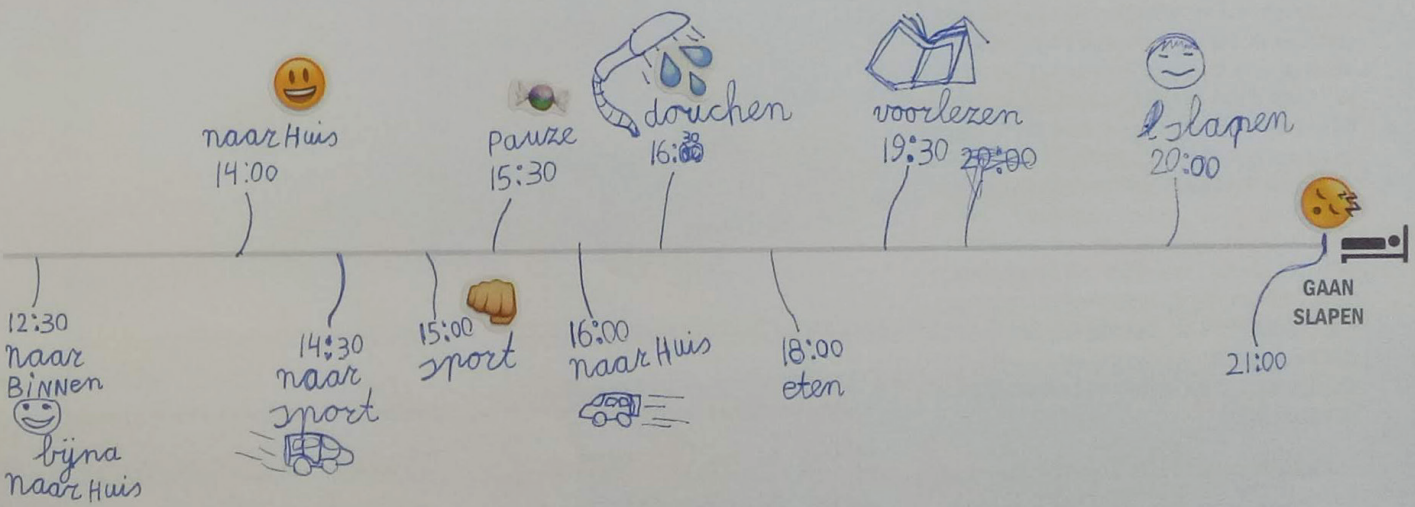 naar Huis
14:00
pauze
15:30
douchen
16:30
voorlezen
19:30
20:00
slapen
20:00
12:30
naar
BiNNen
bijna
naar Huis
14:30
naar
sport
15:00
sport
16:00
naar Huis
18:00
eten
21:00
GAAN
SLAPEN